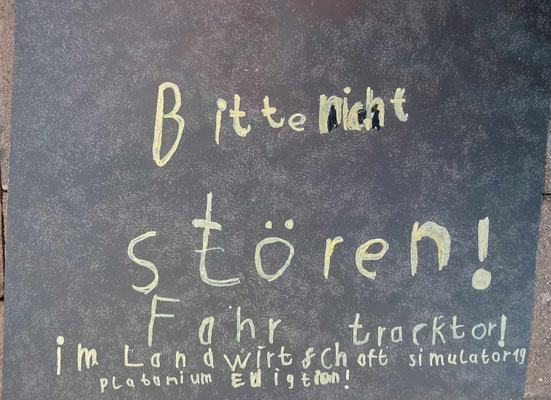 Bitte nicht
stören!
Fahr tracktor!
im Landwirtschaft simulator19
platanium Edigtion!